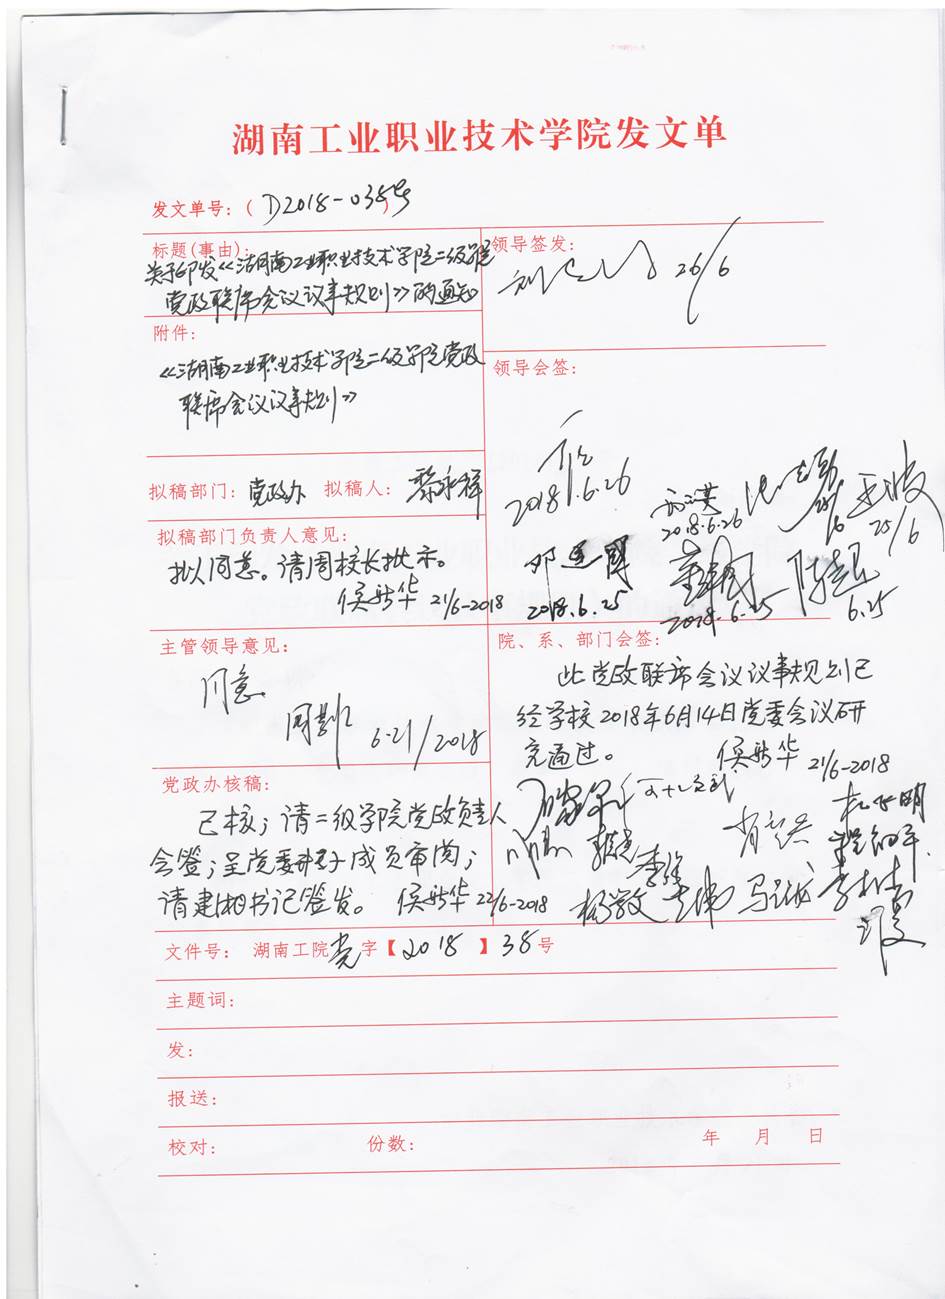 湖南工业职业技术学院发文单
发文单号:( D2018-038号 )
标题(事由):
关于印发《湖南工业职业技术学院二级学院
党政联席会议议事规则》的通知
领导签发:
26/6
附件:
《湖南工业职业技术学院二级学院党政
联席会议议事规则》
领导会签:
2018.6.26
2018.6.26
25/6
邓建国
2018.6.25
2018.6.25
6.25
拟稿部门: 党政办 拟稿人: 黎永祥
拟稿部门负责人意见:
拟同意。请周校长批示。
侯新华 21/6-2018
主管领导意见:
同意
6-21/2018
院、系、部门会签:
此党政联席会议议事规则已
经学校2018年6月14日党委会议研
究通过。
侯新华 21/6-2018
李维
杨敏
马
党政办核稿:
已核;请二级学院党政负责人
会签;呈党委班子成员审阅;
请建湘书记签发。 侯新华 22/6-2018
文件号: 湖南工院党字【2018】38号
主题词:
发:
报送:
校对: 份数: 年 月 日